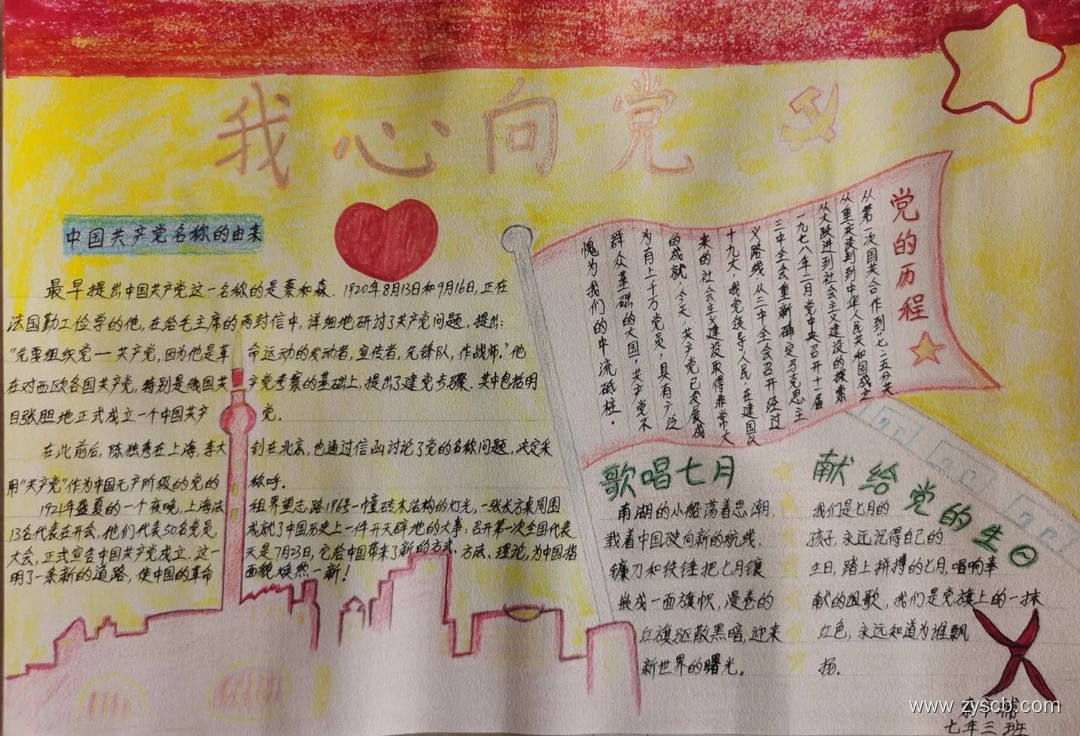 我心向党
中国共产党名称的由来
最早提出中国共产党这一名称的是蔡和森.1920年8月13日和9月16日,正在
法国勤工俭学的他,在给毛主席的两封信中,详细地研讨了共产党问题,提出:
"先要组织党一共产党,因为他是革命运动的发动者,宣传者,先锋队,作战师."他
在对西欧各国共产党,特别是俄国共产党考察的基础上,提出了建党步骤.其中包括明
目张胆地正式成立一个中国共产党.
在此前后,陈独秀在上海,李大钊在北京,也通过信函讨论了党的名称问题,决定采
用"共产党"作为中国无产阶级的党的称呼.
1921年盛夏的一个夜晚,上海法租界望志路196号一幢砖木结构的灯光,一张长方桌周围
13名代表在开会,他们代表50名党员成就了中国历史上一件开天辟地的大事:召开第一次全国代表
大会,正式宣告中国共产党成立.这一天是7月23日,它给中国带来了新的方式、方法、理论,为中国指
明了一条新的道路,使中国的革命面貌焕然一新!
党的历程
从第一次国共合作到七·二五公共
从重庆谈判到中华人民共和国成立
从大跃进到社会主义建设的探索
一九七八年二月党中央召开十一届
三中全会重新确定马克思主
义路线,从三中全会召开经过
十九大,我党领导人民,在建国以
来的社会主义建设取得非常大
的成就,今天,共产党已发展成
为有上千万党员,具有广泛
群众基础的大国,共产党不
愧为我们的中流砥柱.
歌唱七月
南湖的小船荡着思潮,
载着中国驶向新的航线,
镰刀和铁锤把七月镶
嵌成一面旗帜,漫卷的
红旗驱散黑暗,迎来
新世界的曙光。
献给党的生日
我们是七月的
孩子,永远记得自己的
生日,踏上拼搏的七月,唱响奉
献的组歌,我们是党旗上的一抹
红色,永远知道为谁飘
扬.
www.zyscb.com
七年三班